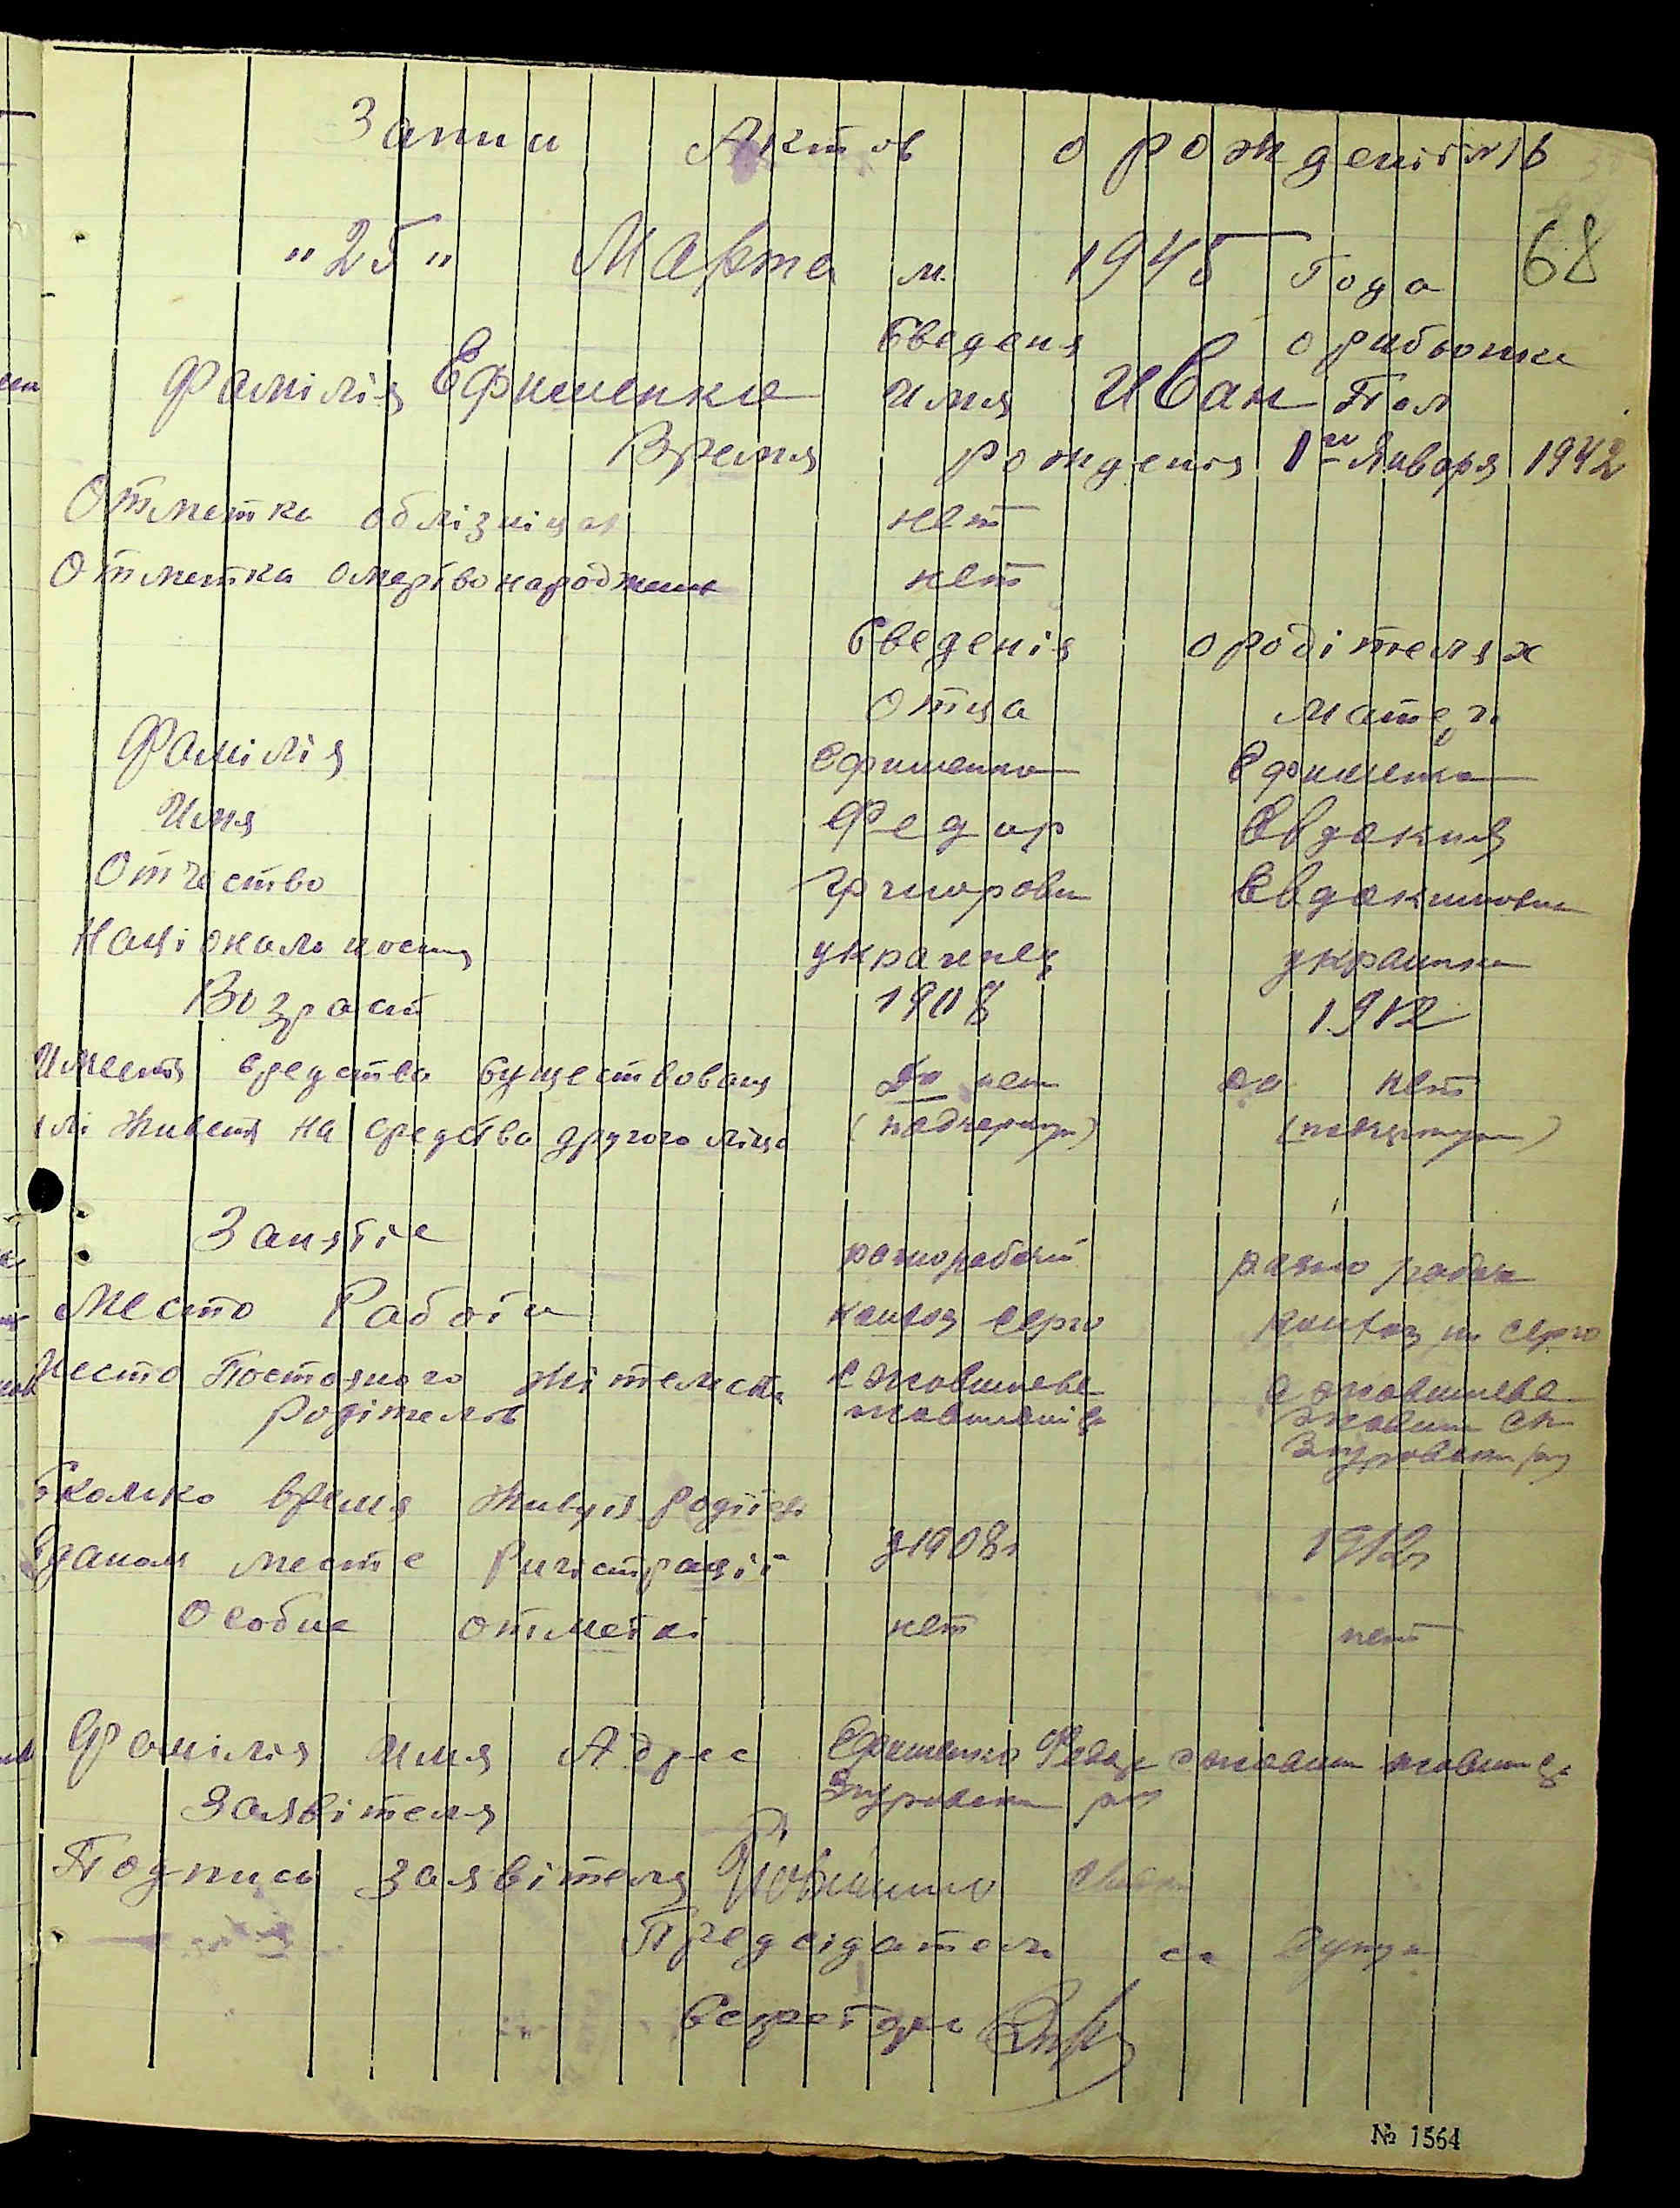 Запи Актов о рожденіи №16
"25" Марта м. 1945 Года 68
Сведеня о рибьонке
Фамілія Ефименко имя Иван Пол
Время рожденія 1го Января 1942
Отметка облізніцах нет
Отметка омертвонародженю нет
Сведенія ородітелях
Отца Матері
Фамілія Ефименко Ефименко
Имя Федор Евдокия
Отчество Григорови Евдокимовна
Національность украинец украинка
Возраст 1908 1912
Имеетя средства существованя да нет да нет
ілі живетя на средства другого ліца (подчеркнут) (подчеркнут)
Занятіе разнорабочий разно рабоч
Место Работи колхоз Серго колхоз им Серго
Место Постояного жітельства
Родітелей
Сколко время живут родітелі
вданом месте Ригістрації з 1908г 1912г
Особие отметкі нет нет
Фамілія имя Адрес Ефименко Федор
Заявітеля
Подпись заявітеля
Предсідатель сс
Секретарь
№ 1564